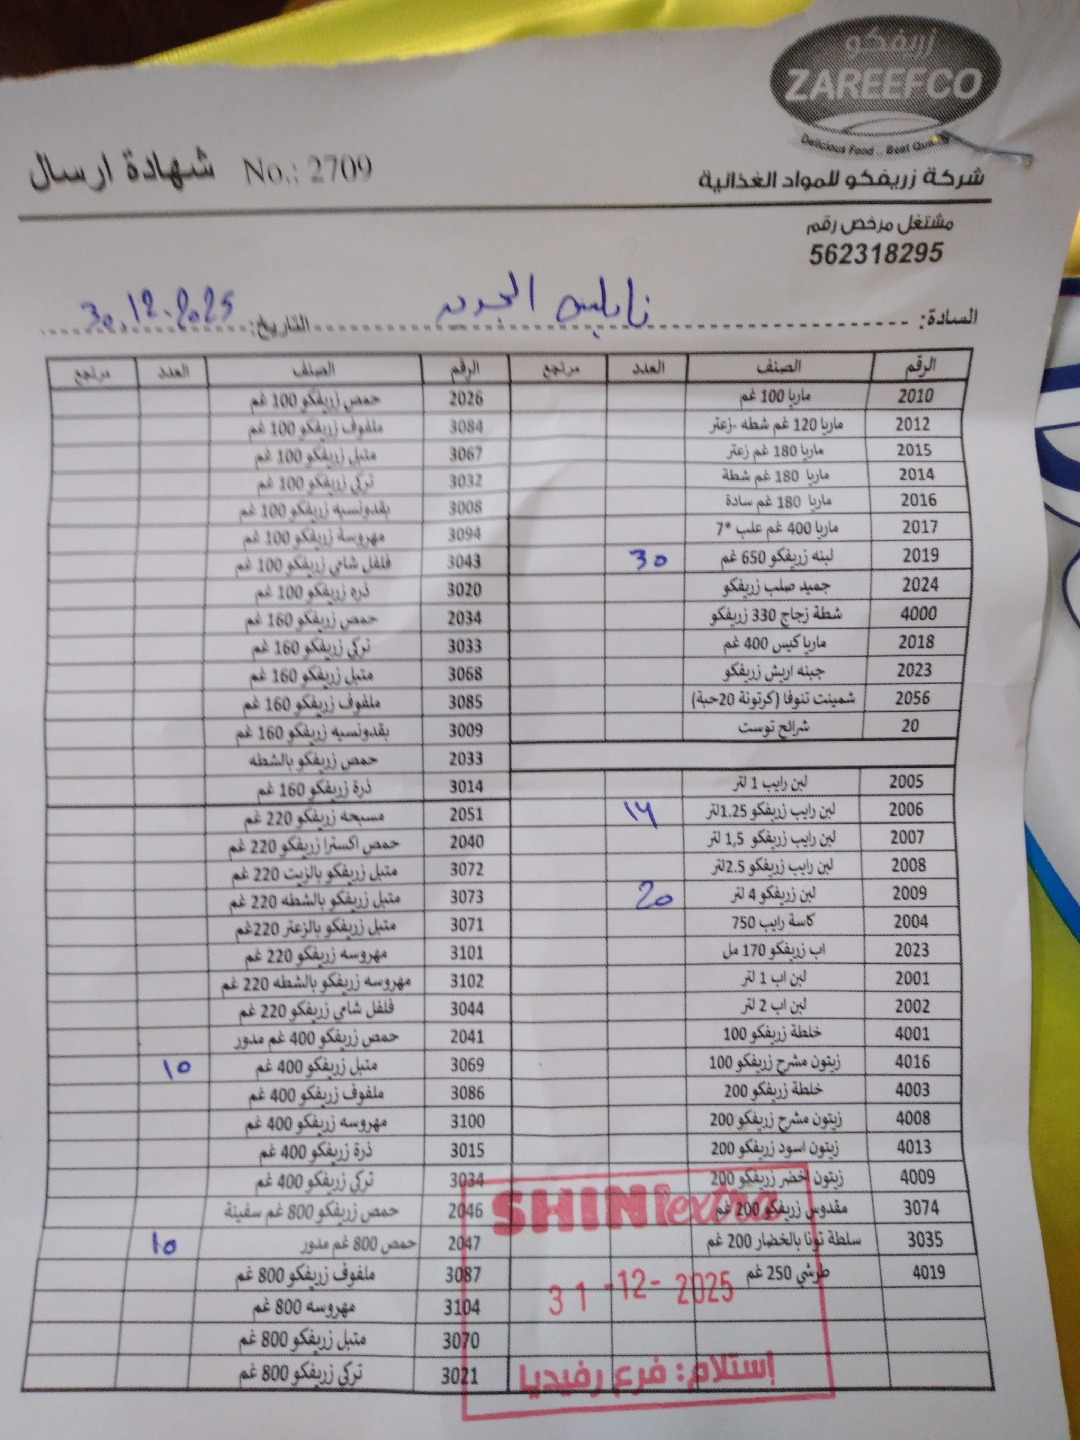 زريفكو
ZAREEFCO
Delicious Food .. Best Quality
شركة زريفكو للمواد الغذائية
شهادة ارسال No.: 2709
مشتغل مرخص رقم
562318295
السادة: نابلس الجديد التاريخ: 30.12.2025
الرقم الصنف العدد مرتجع الرقم الصنف العدد مرتجع
2010 ماريا 100 غم 2026 حمص زريفكو 100 غم
2012 ماريا 120 غم شطه -زعتر 3084 ملفوف زريفكو 100 غم
2015 ماريا 180 غم زعتر 3067 متبل زريفكو 100 غم
2014 ماريا 180 غم شطة 3032 تركي زريفكو 100 غم
2016 ماريا 180 غم سادة 3008 بقدونسيه زريفكو 100 غم
2017 ماريا 400 غم علب *7 3094 مهروسة زريفكو 100 غم
2019 لبنه زريفكو 650 غم 30 3043 فلفل شامي زريفكو 100 غم
2024 جميد صلب زريفكو 3020 ذره زريفكو 100 غم
4000 شطة زجاج 330 زريفكو 2034 حمص زريفكو 160 غم
2018 ماريا كيس 400 غم 3033 تركي زريفكو 160 غم
2023 جبنه اريش زريفكو 3068 متبل زريفكو 160 غم
2056 شمينت تنوفا (كرتونة 20حبة) 3085 ملفوف زريفكو 160 غم
20 شرائح توست 3009 بقدونسيه زريفكو 160 غم
2033 حمص زريفكو بالشطه
2005 لبن رايب 1 لتر 3014 ذرة زريفكو 160 غم
2006 لبن رايب زريفكو 1.25لتر ١٢ 2051 مسبحه زريفكو 220 غم
2007 لبن رايب زريفكو 1,5 لتر 2040 حمص اكسترا زريفكو 220 غم
2008 لبن رايب زريفكو 2.5لتر 3072 متبل زريفكو بالزيت 220 غم
2009 لبن زريفكو 4 لتر 20 3073 متبل زريفكو بالشطه 220 غم
2004 كاسة رايب 750 3071 متبل زريفكو بالزعتر 220غم
2023 اب زريفكو 170 مل 3101 مهروسه زريفكو 220 غم
2001 لبن اب 1 لتر 3102 مهروسه زريفكو بالشطه 220 غم
2002 لبن اب 2 لتر 3044 فلفل شامي زريفكو 220 غم
4001 خلطة زريفكو 100 2041 حمص زريفكو 400 غم مدور
4016 زيتون مشرح زريفكو 100 3069 متبل زريفكو 400 غم 10
4003 خلطة زريفكو 200 3086 ملفوف زريفكو 400 غم
4008 زيتون مشرح زريفكو 200 3100 مهروسه زريفكو 400 غم
4013 زيتون اسود زريفكو 200 3015 ذرة زريفكو 400 غم
4009 زيتون اخضر زريفكو 200 3034 تركي زريفكو 400 غم
3074 مقدوس زريفكو 200 غم 2046 حمص زريفكو 800 غم سفينة
3035 سلطة تونا بالخضار 200 غم 2047 حمص 800 غم مدور 10
4019 طرشي 250 غم 3087 ملفوف زريفكو 800 غم
3104 مهروسه 800 غم
3070 متبل زريفكو 800 غم
3021 تركي زريفكو 800 غم
SHINI extra
31-12-2025
إستلام: فرع رفيديا